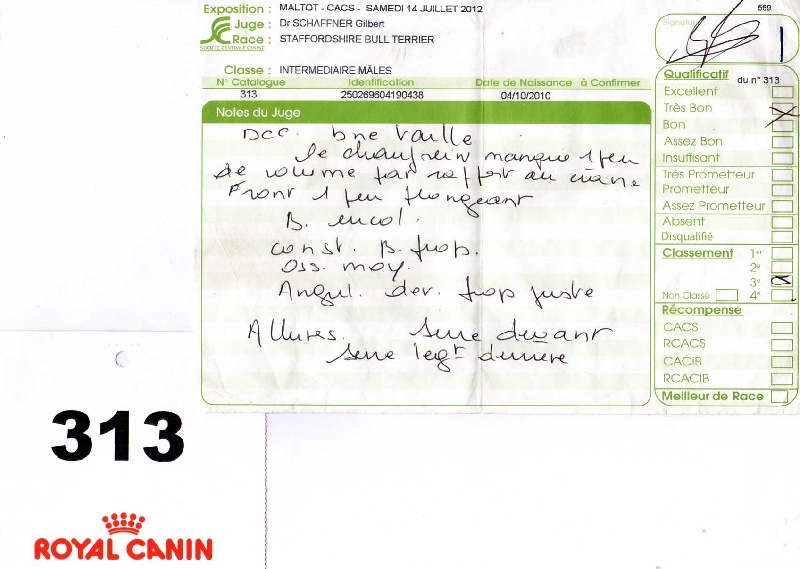 Exposition : MALTOT - CACS - SAMEDI 14 JUILLET 2012
Juge : Dr SCHAFFNER Gilbert
Race : STAFFORDSHIRE BULL TERRIER
SOCIÉTÉ CENTRALE CANINE
Classe : INTERMEDIAIRE MÂLES
N° Catalogue Identification Date de Naissance à Confirmer
313 250269604190438 04/10/2010
Notes du Juge
Dcc. bne taille
le chanfrein manque 1 peu
de volume par rapport au crâne
Front 1 peu plongeant
B. encol.
const. B. prop.
Oss. moy.
Angul. der. trop juste
Allures. Serre devant
Serre legt derrière
569
Signature
Qualificatif du n° 313
Excellent
Très Bon
Bon
Assez Bon
Insuffisant
Très Prometteur
Prometteur
Assez Prometteur
Absent
Disqualifié
Classement 1er
2e
3e
Non Classé 4e
Récompense
CACS
RCACS
CACIB
RCACIB
Meilleur de Race
313
ROYAL CANIN